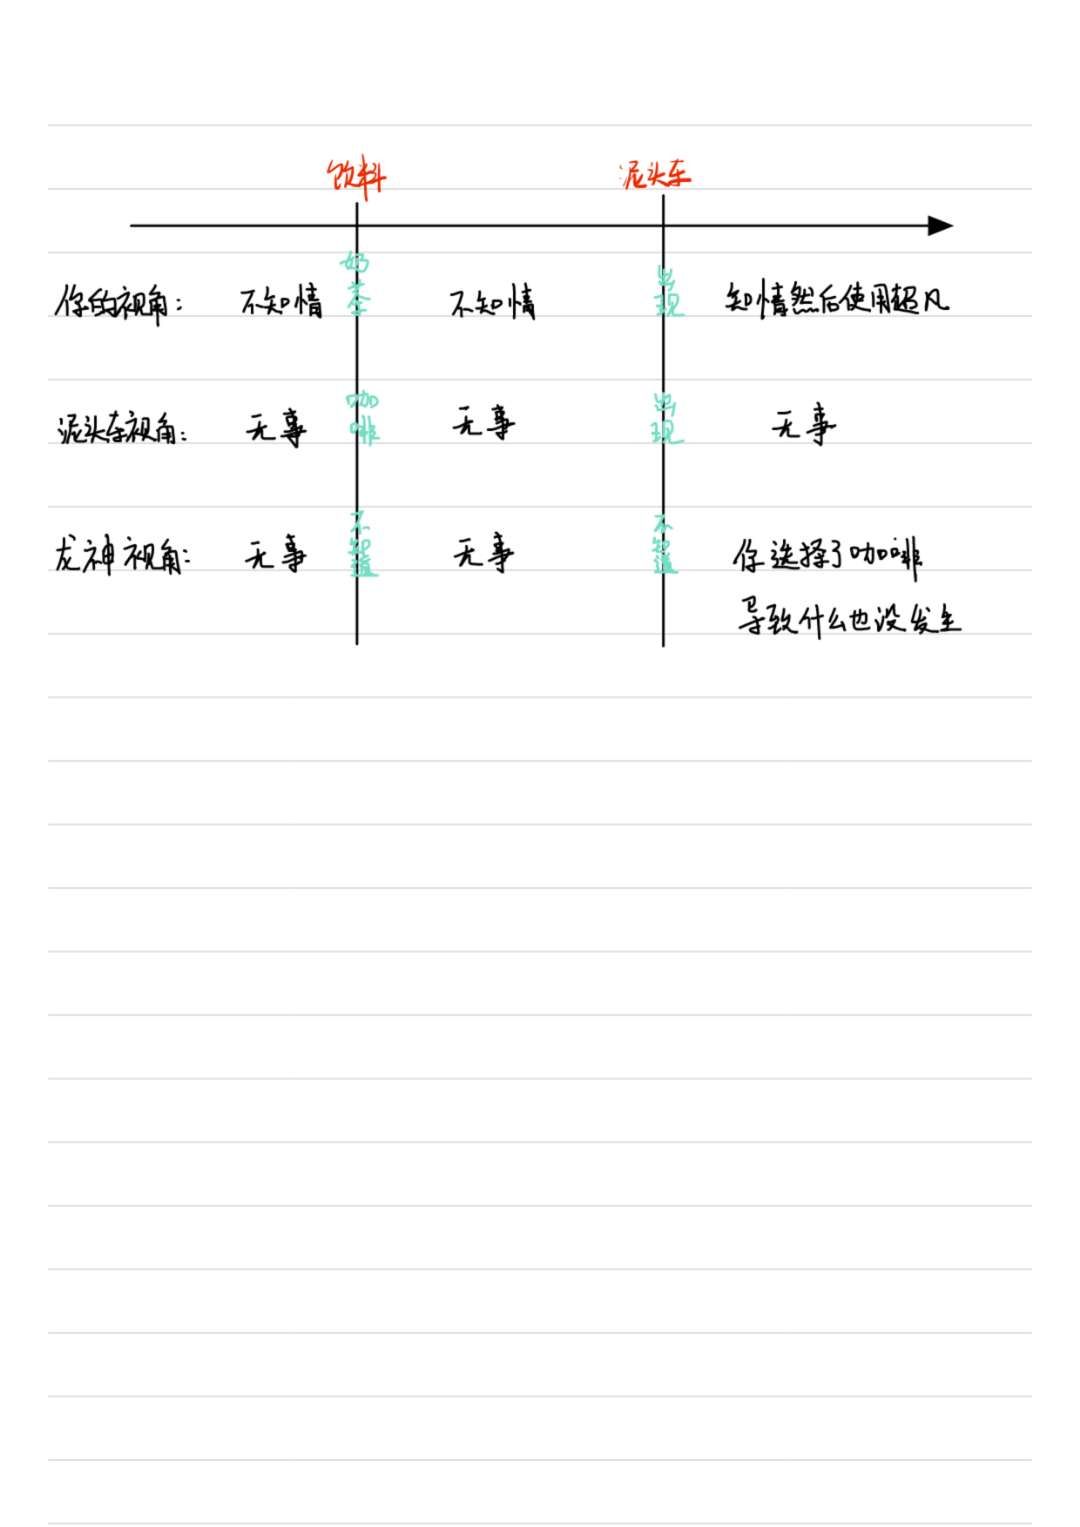 饮料 泥头车
你的视角: 不知情 奶茶 不知情 出现 知情然后使用超凡
泥头车视角: 无事 咖啡 无事 出现 无事
龙神视角: 无事 不知道 无事 不知道 你选择了咖啡
导致什么也没发生